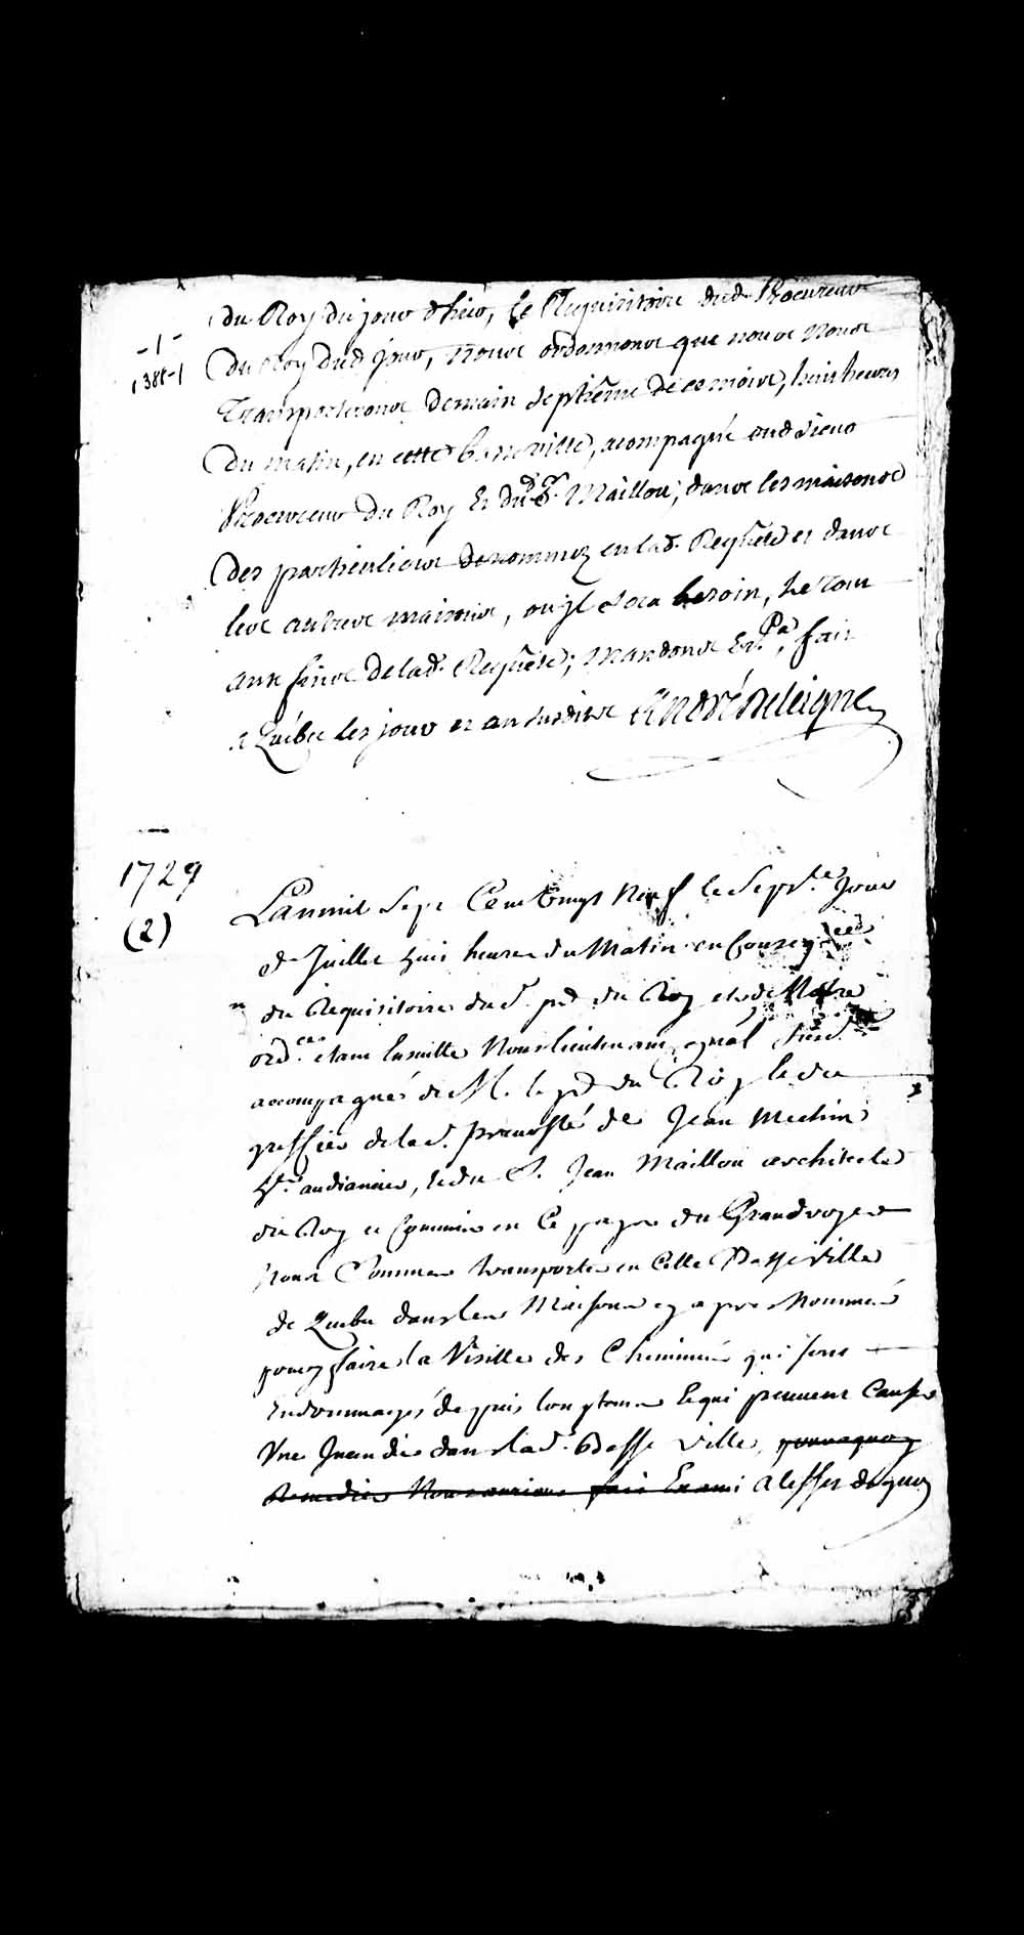 du Roy du jour d'hier, le Requisitoire dud. Procureur
-1-
1381-1
du Roy dud. jour, nous ordonnons que nous nous
Transporterons demain septiême de ce mois, huit heures
du matin, en cette basse ville, acompagné dud. sieur
Procureur du Roy Et dud. Sr. Maillou; dans les maisons
des particuliers denommez en lad. Requête et dans
les autres maisons, ou jl sera besoin, Le tout
aux fins de lad. Requête; Mandons Etca., fait
a Québec les jour et an susdits AndrédeLeigne
1729
(2)
Lan mil Sept Cent Vingt Neuf le Septe. Jour
de Juillet huit heures du Matin en Conseqce.
du Requisitoire dud. pr. du Roy et de Notre
ordce. etant ensuitte Nous lieutenant gnal susd.
accompagnés de M. le pr. du Roy le du
greffier de lad. prevosté de Jean Mechin
hr. audiancier, & du S. Jean Maillou architecte
du Roy et Commis en Ce pays du Grandvoyer
Nous Sommes transportés en Cette Basse Ville
de Quebec dans les Maisons cy apres Nommés
pour y faire la Visitte des Cheminées qui sont
Endommagés depuis longtems & qui peuvent Causer
Vne Jncendie dans lad. Basse Ville, pour a quoy
Remedier Nous aurions fait Exami a leffet de quoy